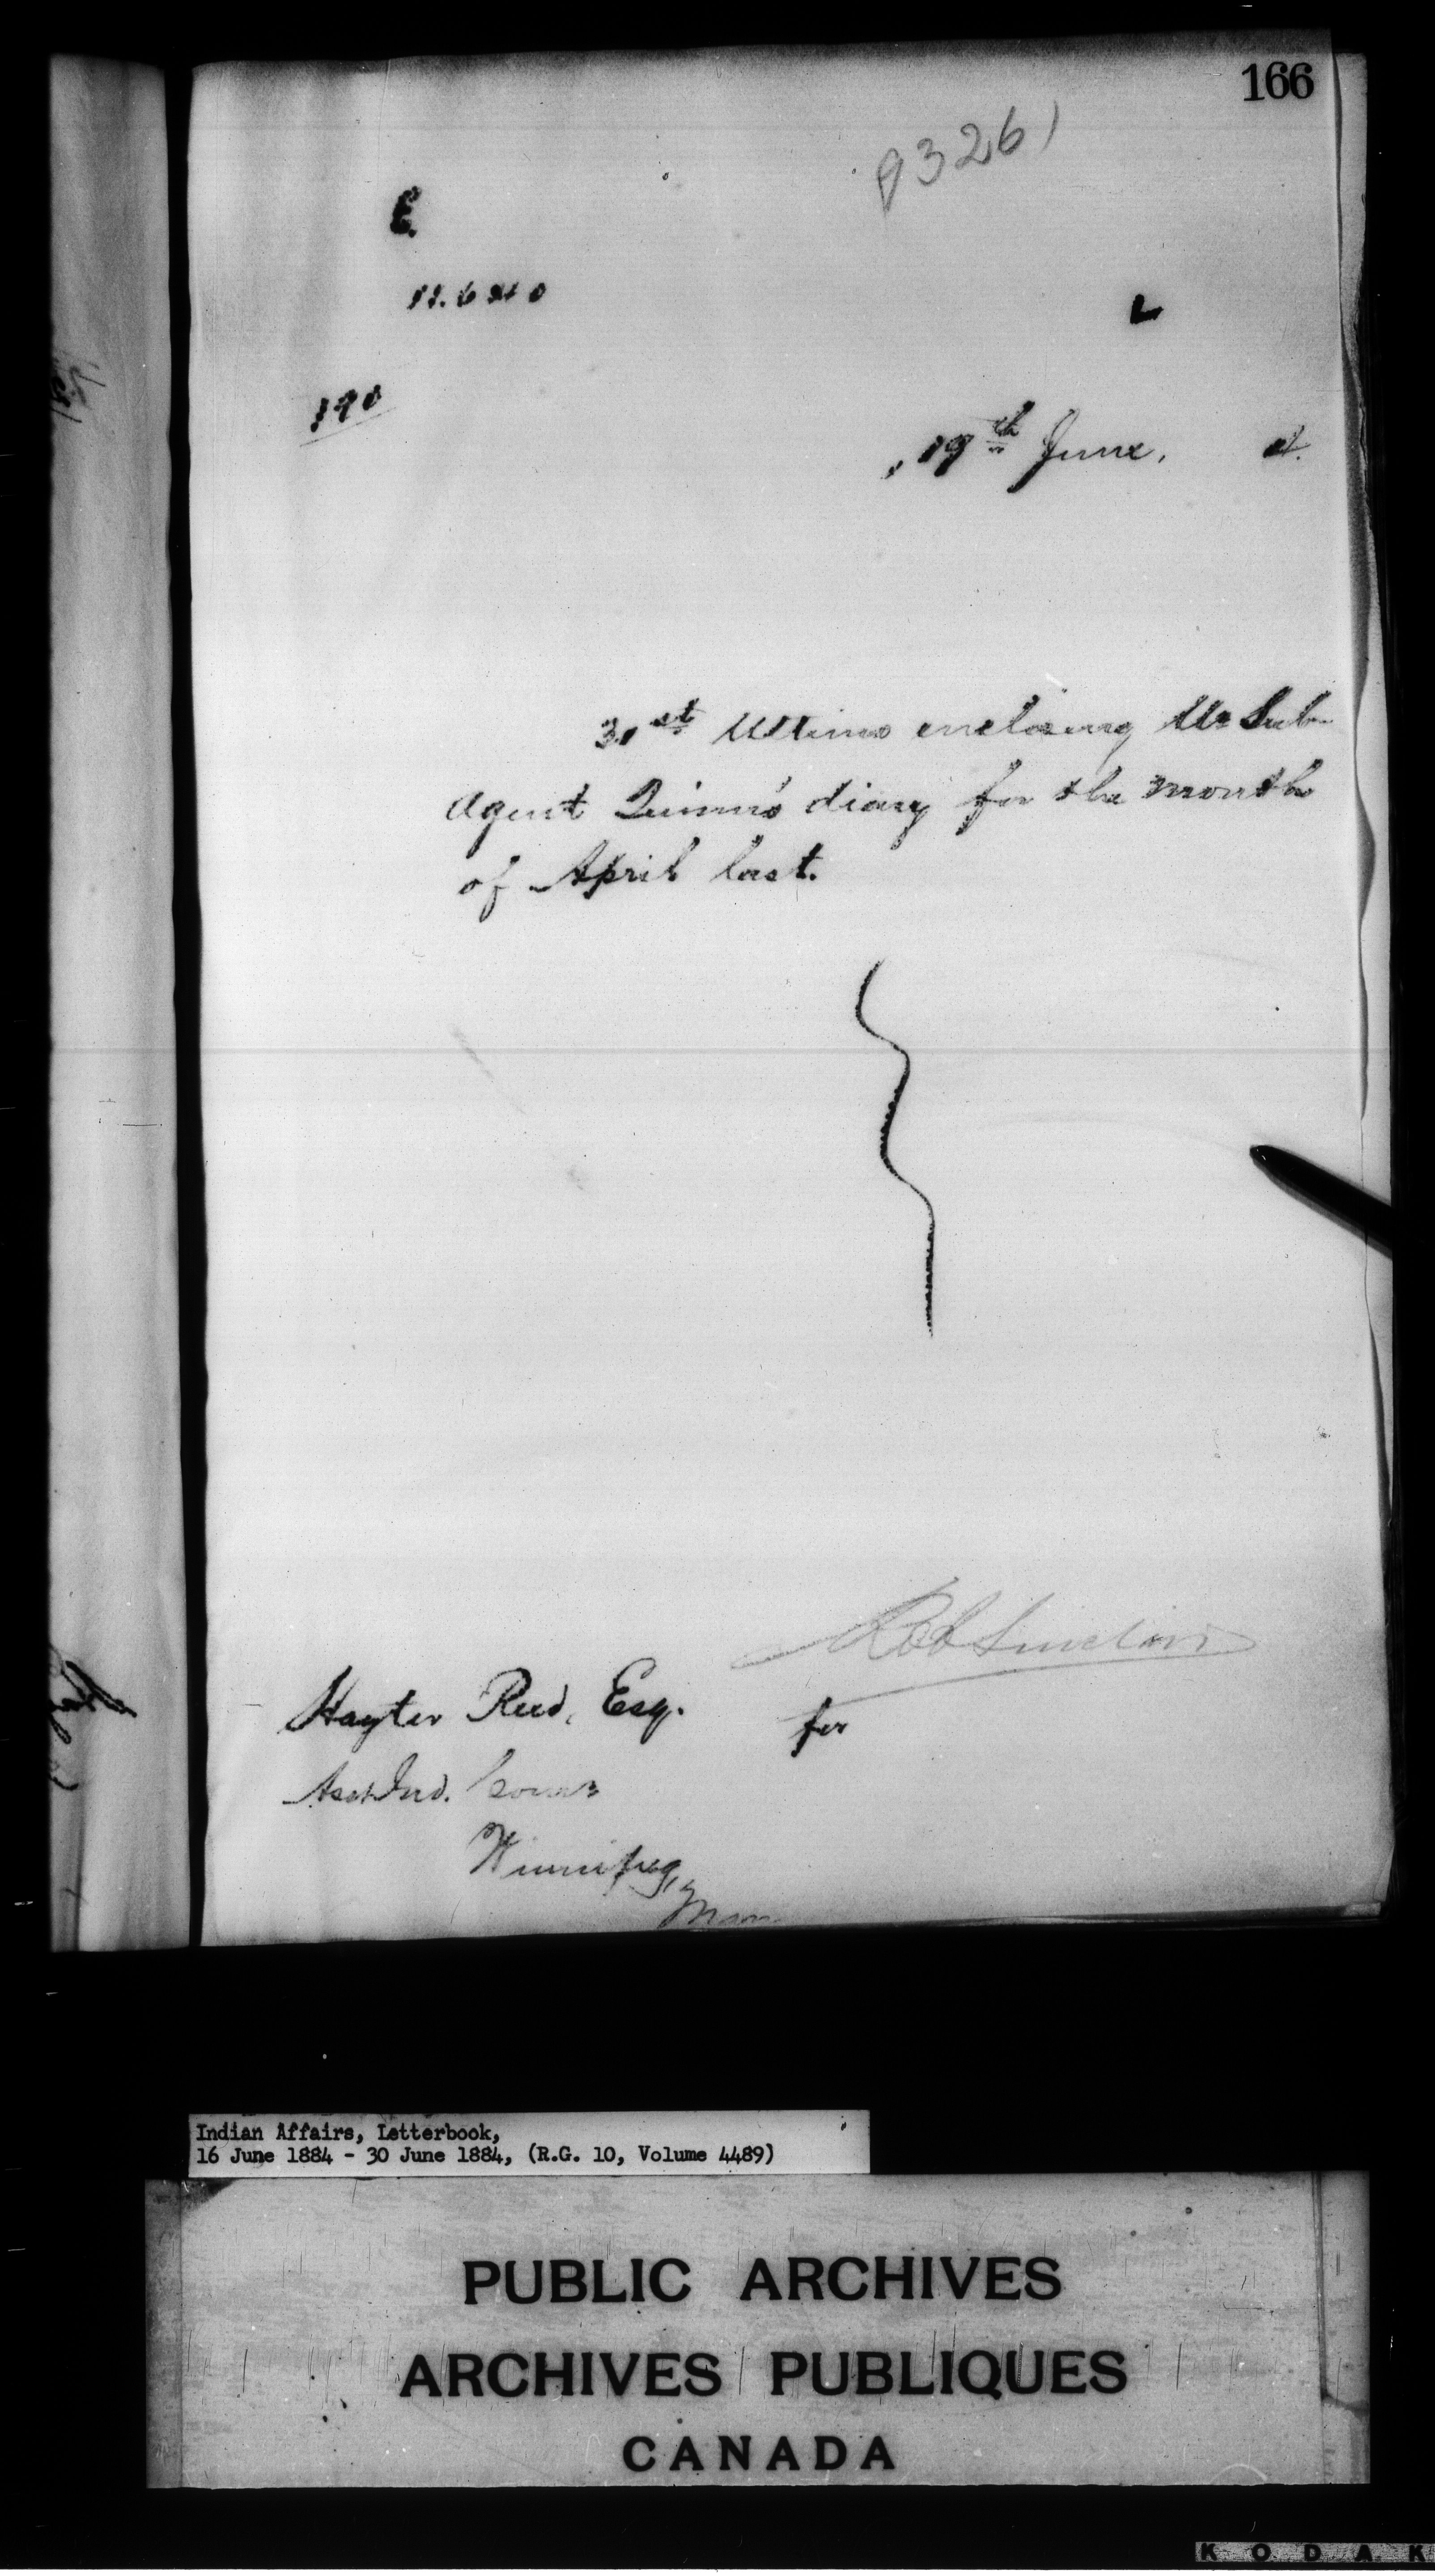 166
E.
190
19th June, 4.
31st Ultimo enclosing Mr Sub-
Agent Quinn's diary for the month
of April last.
Rob Sinclair
Hayter Reed, Esq. for
Asst Ind. Comr
Winnipeg,
Man
Indian Affairs, Letterbook,
16 June 1884 - 30 June 1884, (R.G. 10, Volume 4489)
PUBLIC ARCHIVES
ARCHIVES PUBLIQUES
CANADA
KODAK